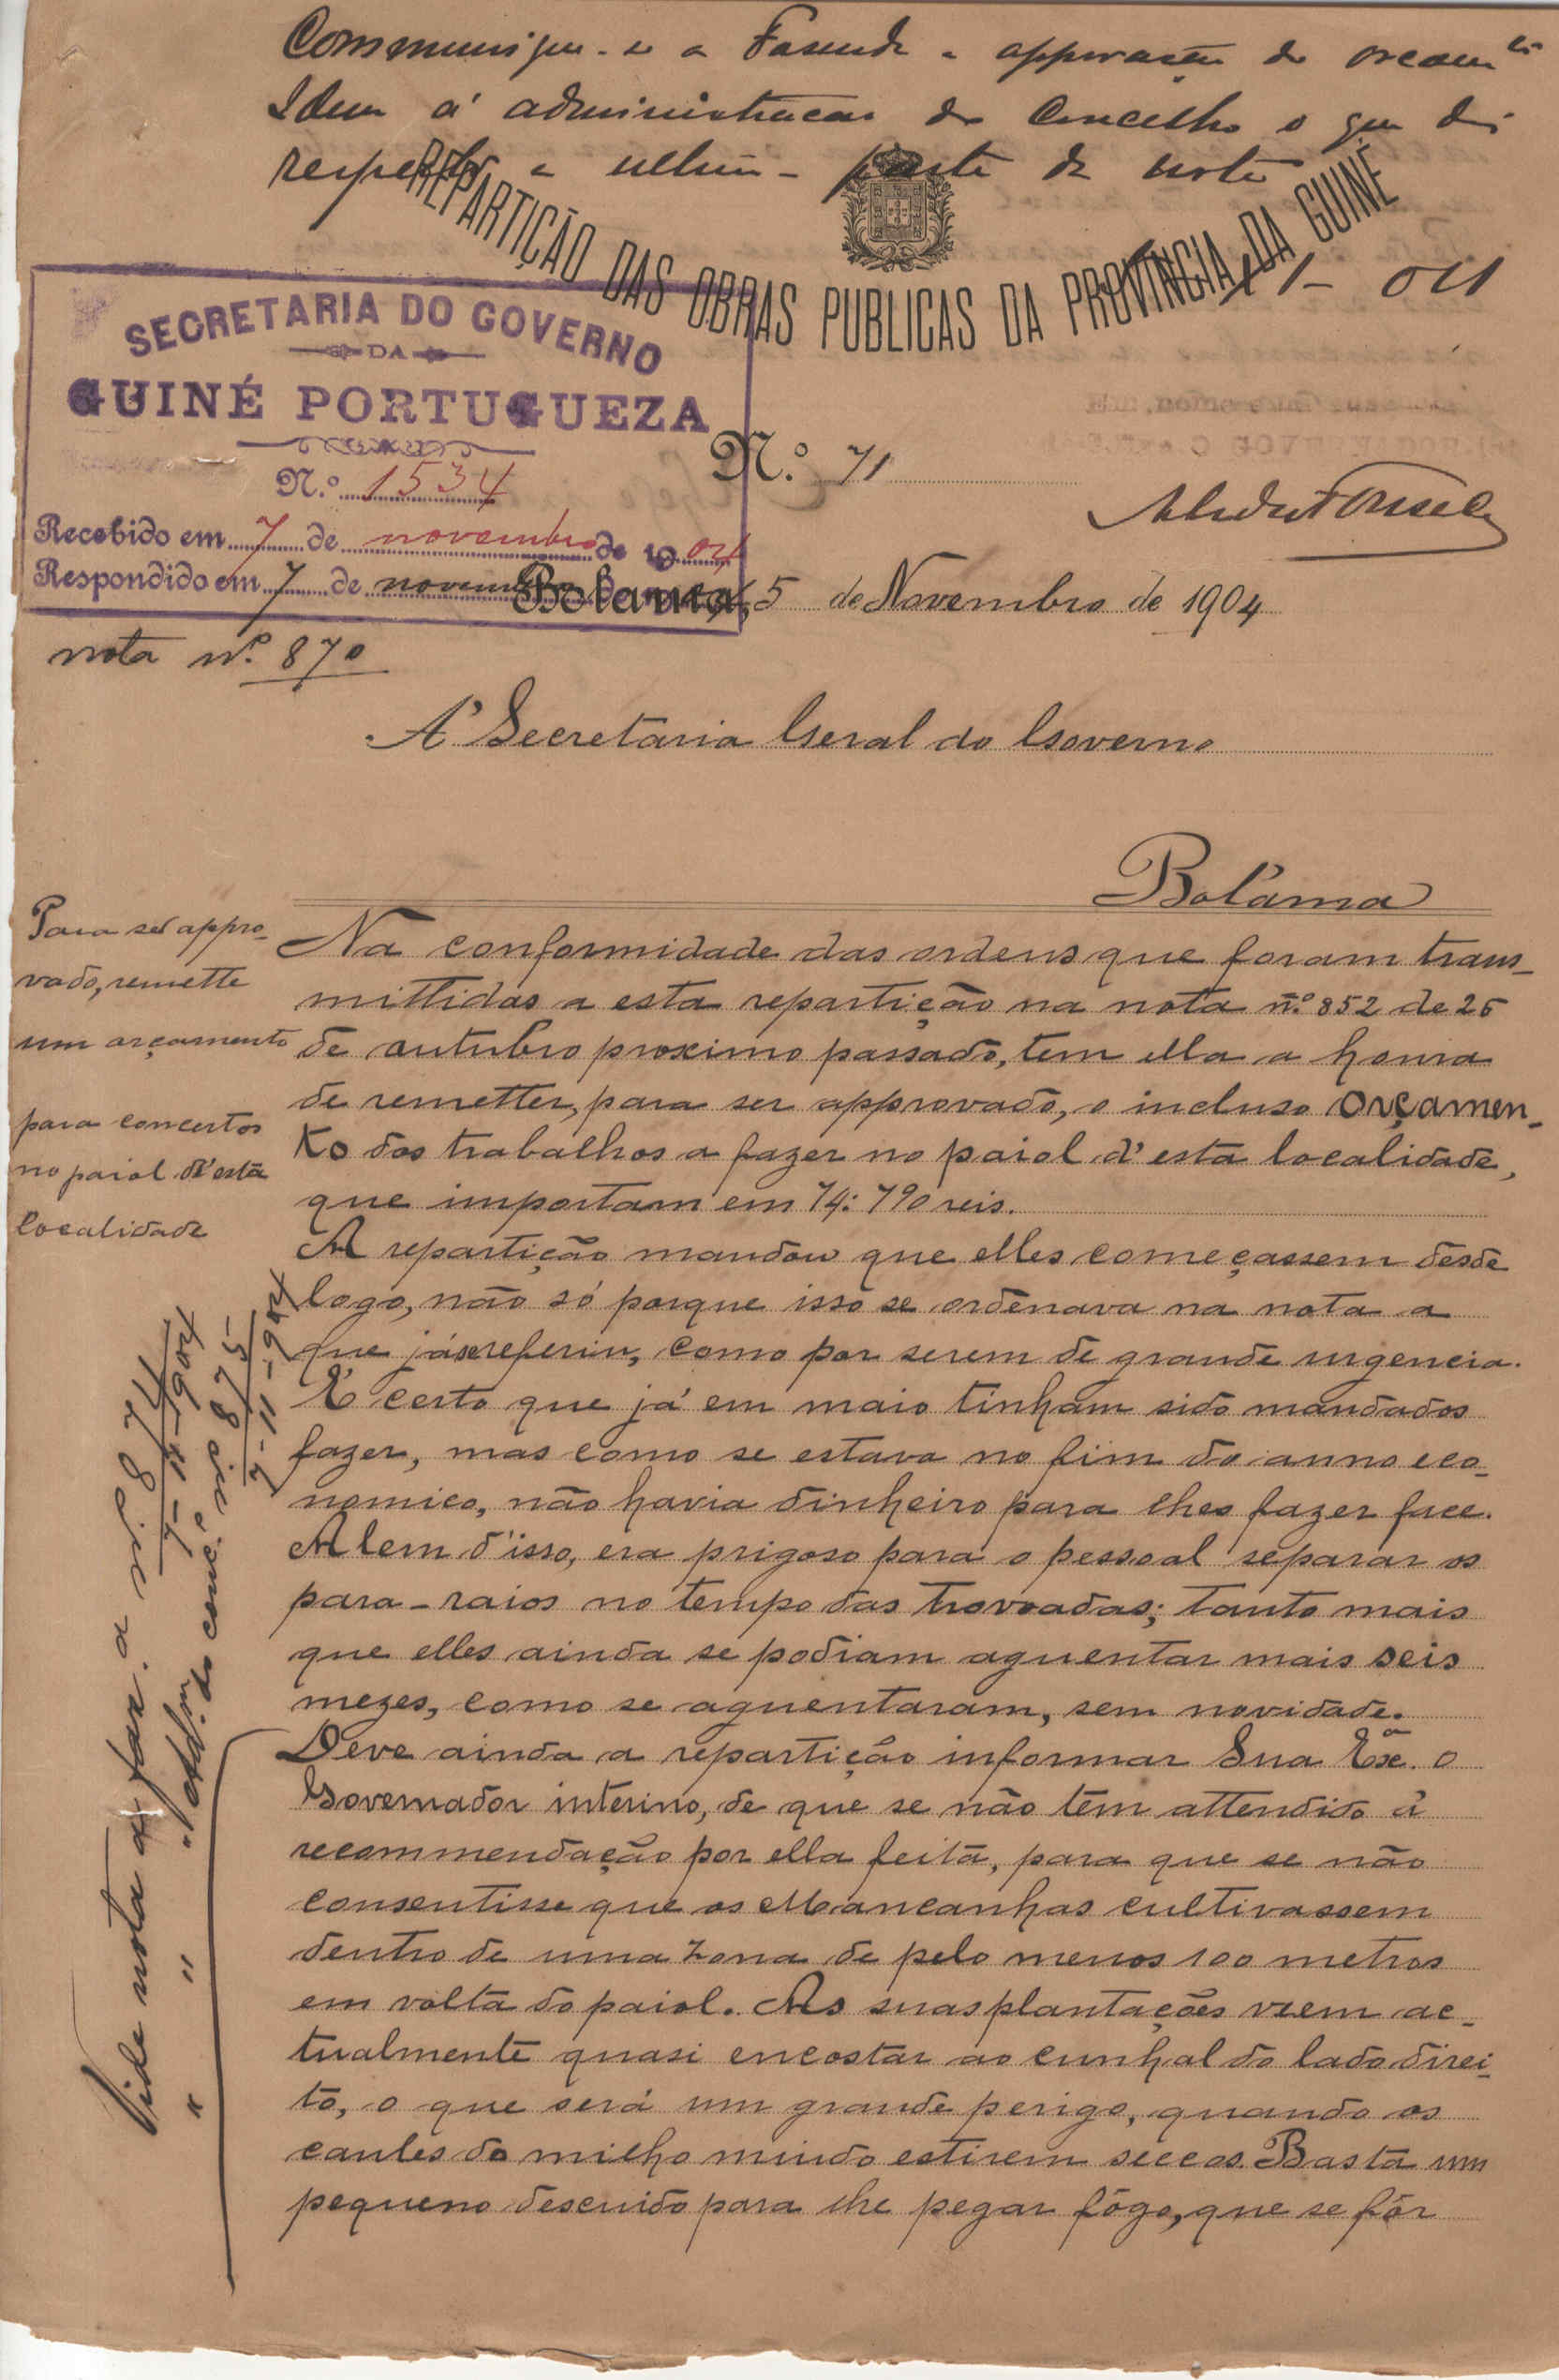 Communique-se a Fasenda a approvação do orcamto
Idem á administracao do Concelho o que diz
respeito a ultima parte da nota
REPARTIÇÃO DAS OBRAS PUBLICAS DA PROVINCIA DA GUINÉ
11-904
SECRETARIA DO GOVERNO
DA
GUINÉ PORTUGUEZA
N.º 1534
Recebido em 7 de novembro de 1904
Respondido em 7 de novembro de 1904
nota nº 870
N.º 71
Bolama, 5 de Novembro de 1904
A' Secretaria Geral do Governo
Bolama
Para ser appro-
vado, remette
um orçamento
para concertos
no paiol d'esta
localidade
Na conformidade das ordens que foram trans-
mittidas a esta repartição na nota n.º 852 de 26
de outubro proximo passado, tem ella a honra
de remetter, para ser approvado, o incluso orçamen-
to dos trabalhos a fazer no paiol d'esta localidade,
que importam em 74:790 reis.
A repartição mandou que elles começassem desde
logo, não só porque isso se ordenava na nota a
que já se referiu, como por serem de grande urgencia.
É certo que já em maio tinham sido mandados
fazer, mas como se estava no fim do anno eco-
nomico, não havia dinheiro para lhes fazer face.
Alem d'isso, era prigoso para o pessoal separar os
para-raios no tempo das trovoadas; tanto mais
que elles ainda se podiam aguentar mais seis
mezes, como se aguentaram, sem novidade.
Deve ainda a repartição informar Sua Exª. o
Governador interino, de que se não tem attendido á
recommendação por ella feita, para que se não
consentisse que os Mancanhas cultivassem
dentro de uma zona de pelo menos 100 metros
em volta do paiol. As suas plantações veem ac-
tualmente quasi encostar ao cunhal do lado direi-
to, o que será um grande perigo, quando os
caules do milho miudo estirem seccos. Basta um
pequeno descuido para lhe pegar fôgo, que se fôr
Vide nota á faz.ª nº 874
7-11-904
" " " Adm do conc.º nº 875
7-11-904